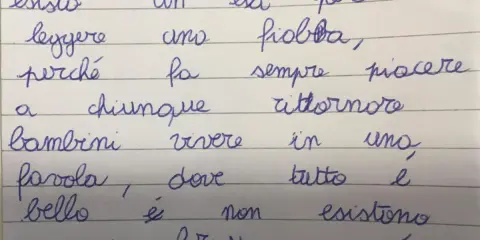 esiste un età per
leggere una fiaba,
perché fa sempre piacere
a chiunque ritornare
bambini vivere in una
favola, dove tutto é
bello é non esistono